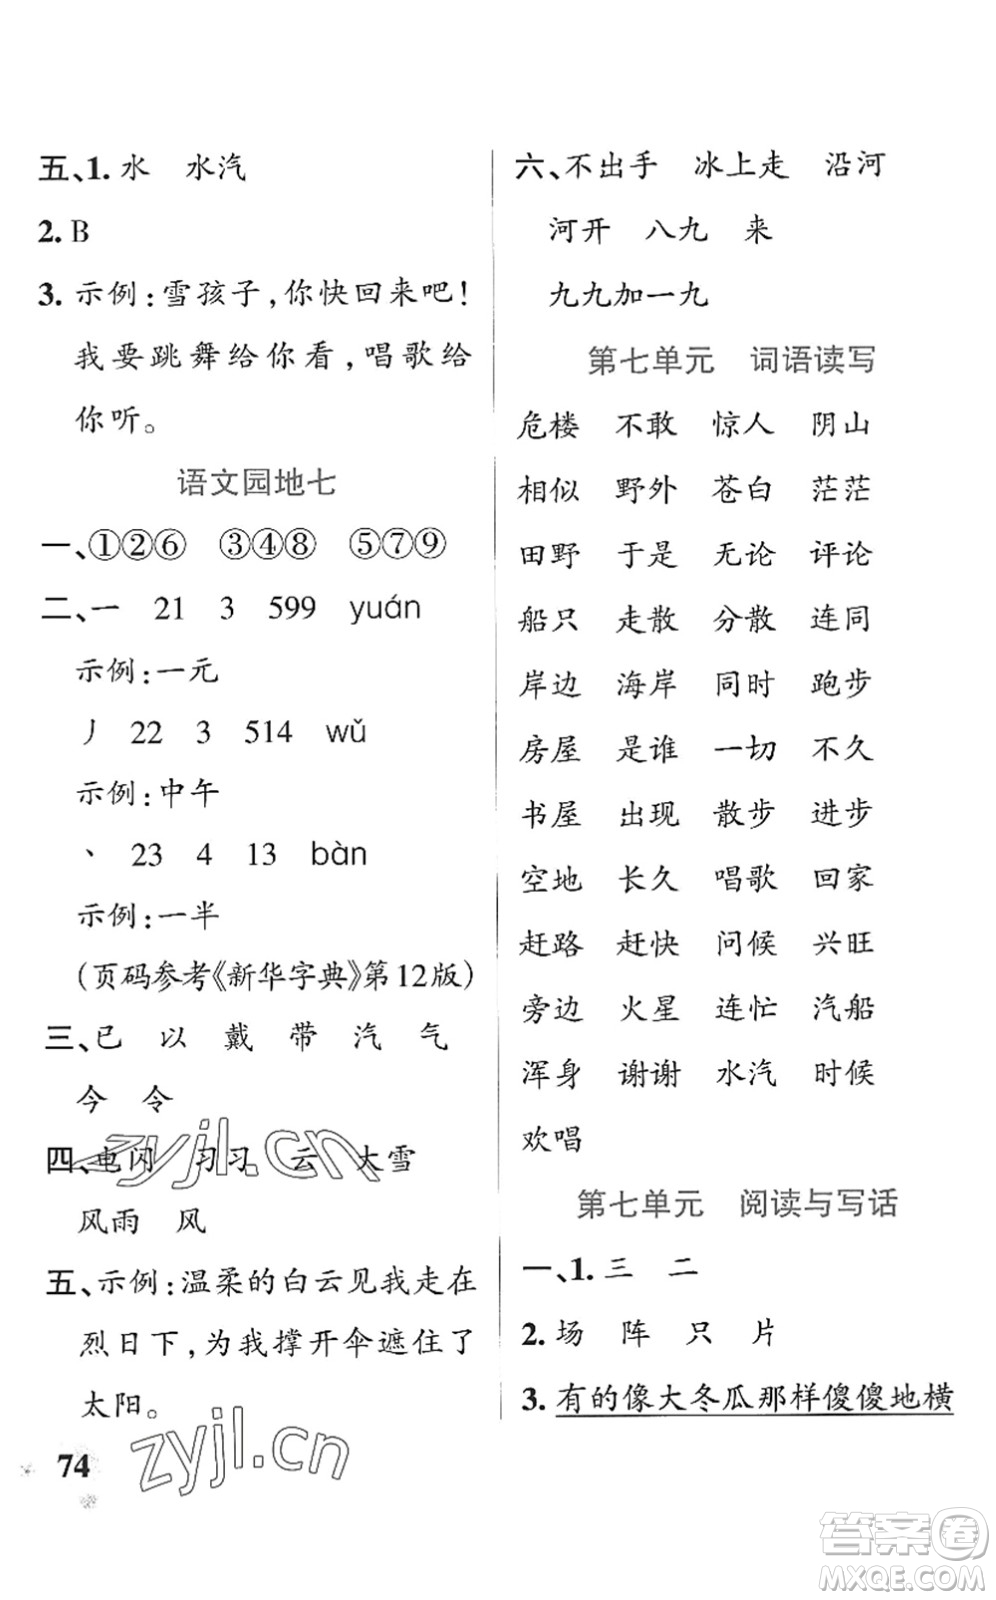 五、1. 水 水汽
2. B
3. 示例：雪孩子，你快回来吧！
我要跳舞给你看，唱歌给
你听。
语文园地七
一、①②⑥ ③④⑧ ⑤⑦⑨
二、一 21 3 599 yuán
示例：一元
丿 22 3 514 wǔ
示例：中午
丶 23 4 13 bàn
示例：一半
（页码参考《新华字典》第12版）
三、已 以 戴 带 汽 气
今 令
四、电闪 习习 云 大雪
风雨 风
五、示例：温柔的白云见我走在
烈日下，为我撑开伞遮住了
太阳。
74
六、不出手 冰上走 沿河
河开 八九 来
九九加一九
第七单元 词语读写
危楼 不敢 惊人 阴山
相似 野外 苍白 茫茫
田野 于是 无论 评论
船只 走散 分散 连同
岸边 海岸 同时 跑步
房屋 是谁 一切 不久
书屋 出现 散步 进步
空地 长久 唱歌 回家
赶路 赶快 问候 兴旺
旁边 火星 连忙 汽船
浑身 谢谢 水汽 时候
欢唱
第七单元 阅读与写话
一、1. 三 二
2. 场 阵 只 片
3. 有的像大冬瓜那样傻傻地横
zyjl.cn
zyjl.cn
答案卷
MXQE.COM